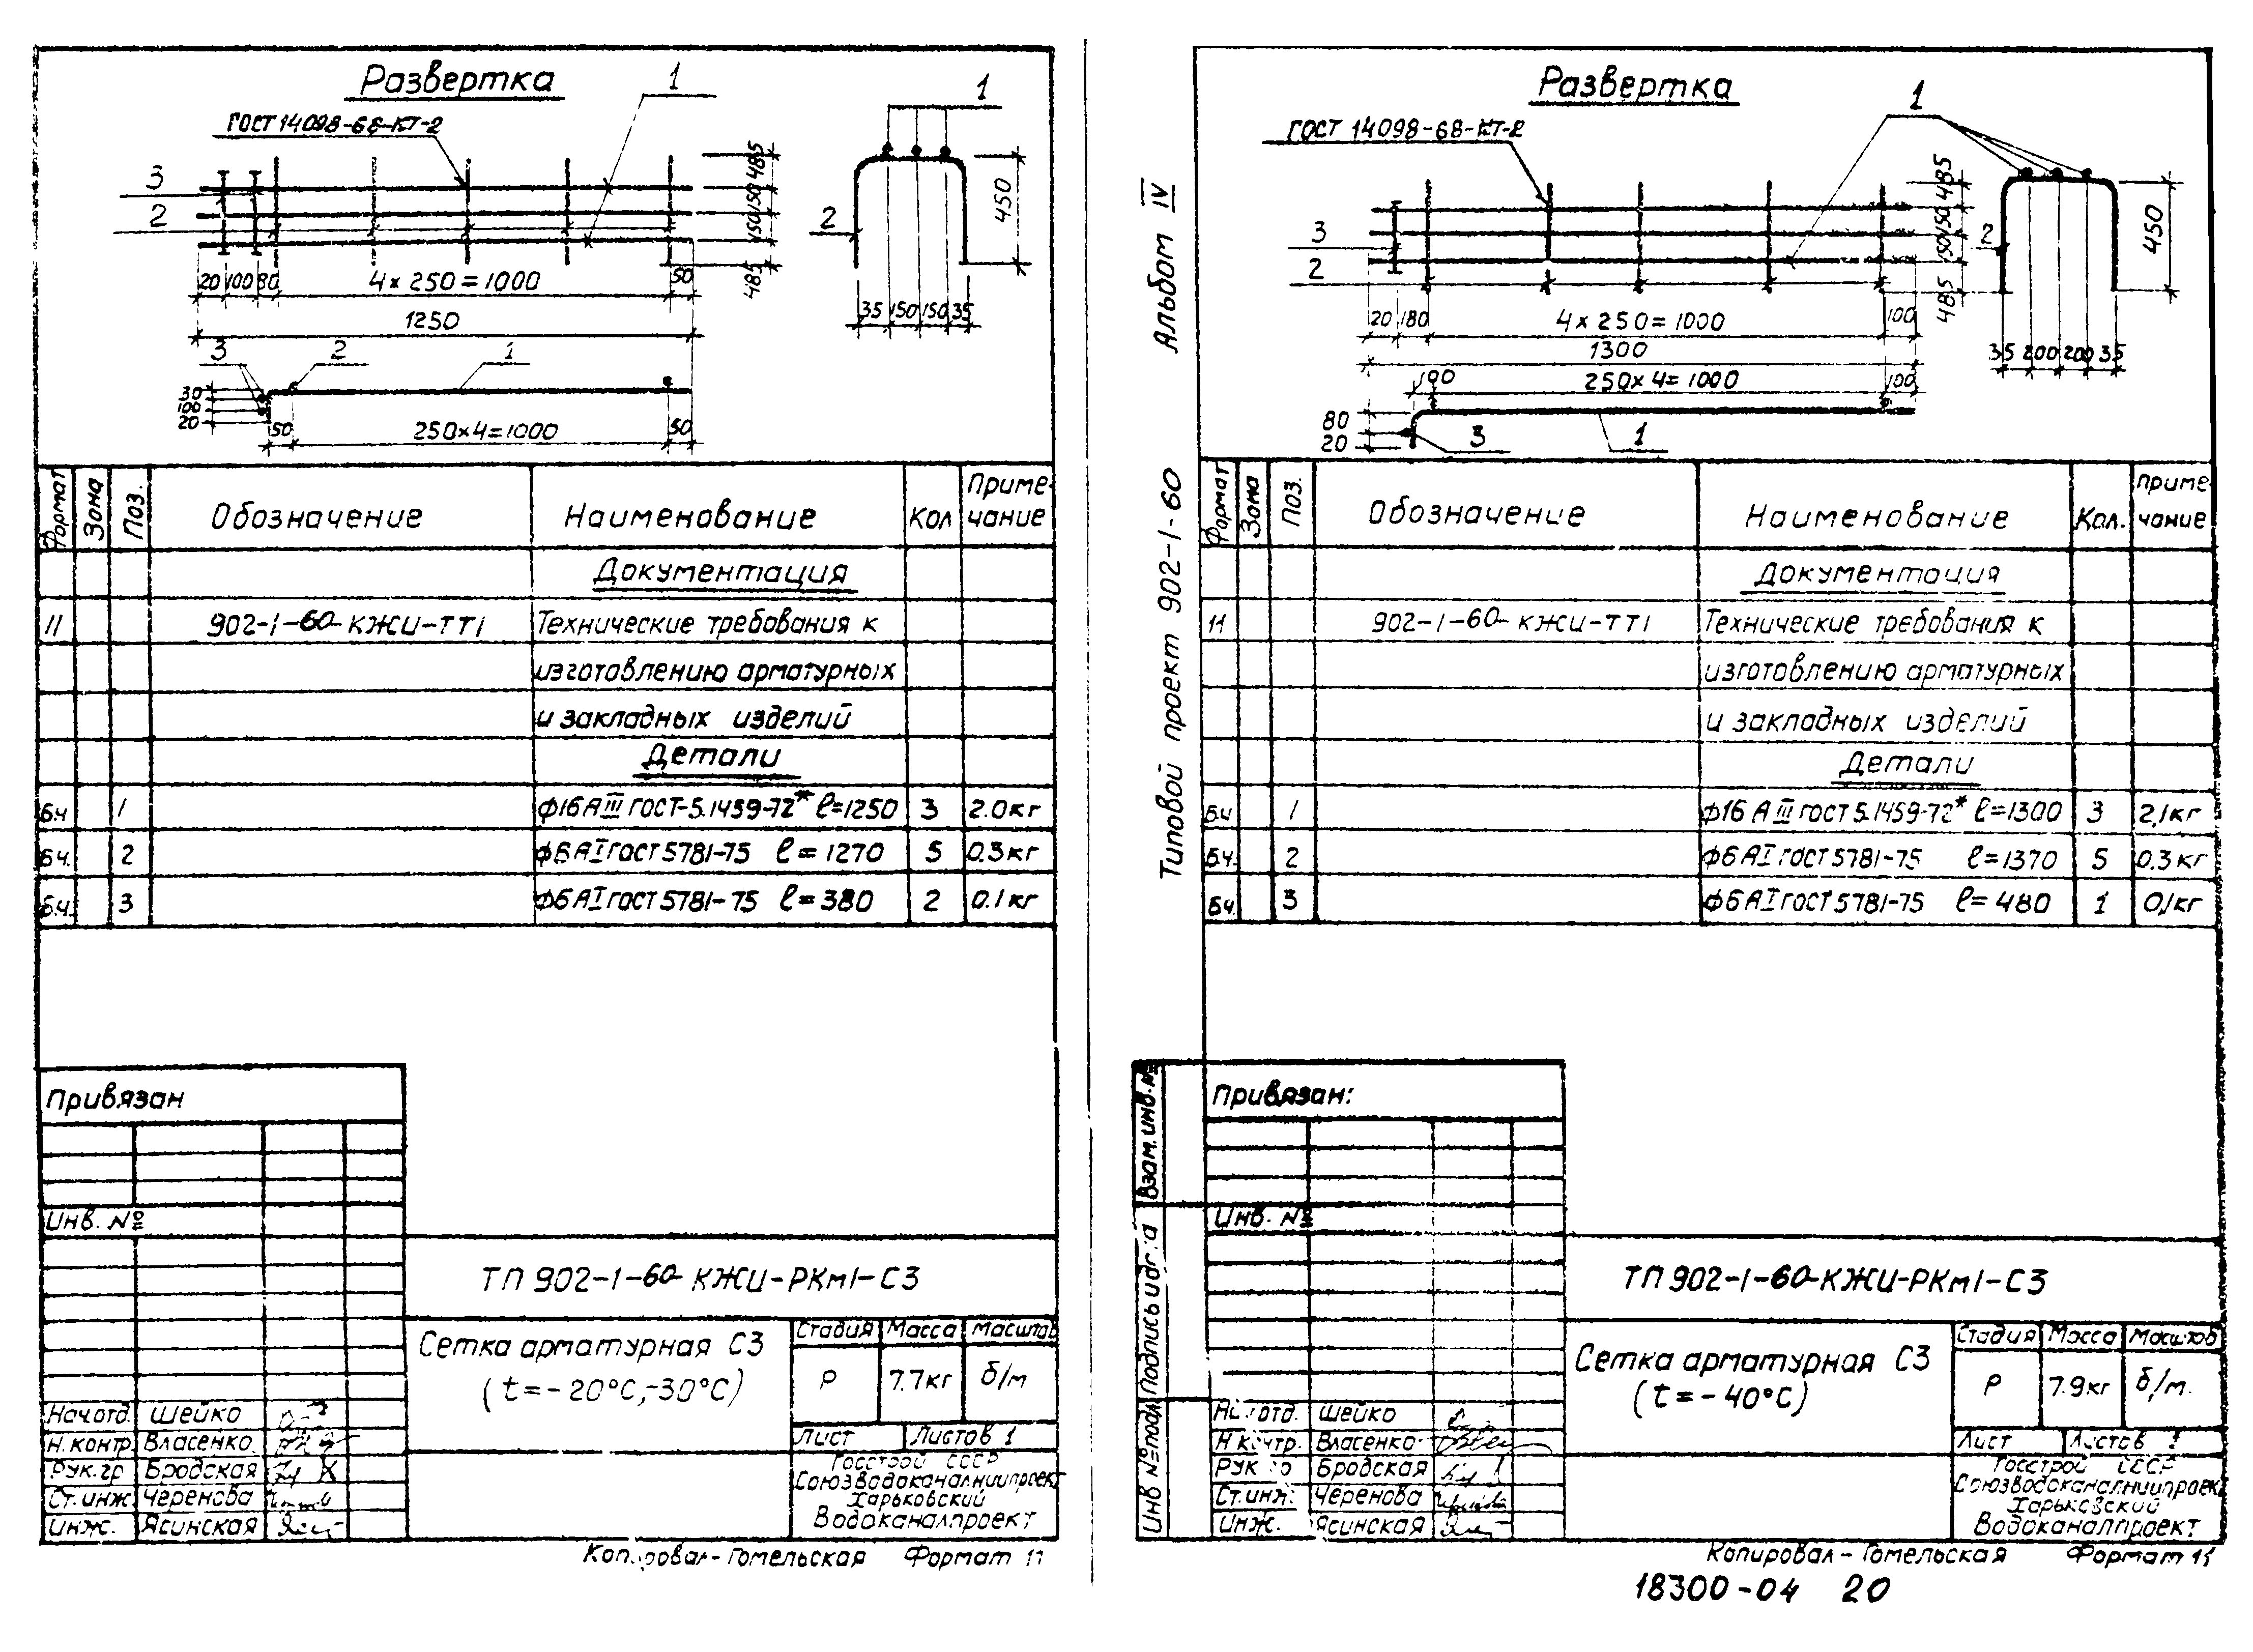 Развертка
1
1
ГОСТ 14098-68-КТ-2
3
2
2
485
150 150
485
450
20 100 80 4×250=1000 50
1250
35 150 150 35
3 2 1
30
100
20
50 250×4=1000 50
Формат Зона Поз. Обозначение Наименование Кол Приме-
чание
Документация
11 902-1-60-КЖИ-ТТ1 Технические требования к
изготовлению арматурных
и закладных изделий
Детали
Б.ч 1 ф16АIII ГОСТ-5.1459-72* ℓ=1250 3 2.0кг
Б.ч. 2 ф6АI ГОСТ 5781-75 ℓ=1270 5 0.3кг
Б.ч. 3 ф6АI ГОСТ 5781-75 ℓ=380 2 0.1кг
Привязан
Инв. №
ТП 902-1-60-КЖИ-РКм1-С3
Сетка арматурная С3
(t=-20°С,-30°С)
Стадия Масса Масштаб
Р 7.7кг б/м
Лист Листов 1
Нач.отд. Шейко
Н.контр. Власенко
Рук.гр Бродская
Ст.инж. Черенова
Инж. Ясинская
Госстрой СССР
Союзводоканалниипроект
Харьковский
Водоканалпроект
Копировал-Гомельская Формат 11
Альбом IV
Типовой проект 902-1-60
Развертка
1
ГОСТ 14098-68-КТ-2
3
2
2
485
150 150
485
450
20 180 4×250=1000 100
1300
35 200 200 35
100 250×4=1000 100
80
20
3 1
Формат Зона Поз. Обозначение Наименование Кол. Приме-
чание
Документация
11 902-1-60-КЖИ-ТТ1 Технические требования к
изготовлению арматурных
и закладных изделий
Детали
Б.ч. 1 ф16 АIII ГОСТ 5.1459-72* ℓ=1300 3 2,1кг
Б.ч. 2 ф6АI ГОСТ 5781-75 ℓ=1370 5 0.3кг
Б.ч. 3 ф6АI ГОСТ 5781-75 ℓ=480 1 0,1кг
Взам.инв.№
Подпись и дата
Инв №подл
Привязан:
Инв. №
ТП 902-1-60-КЖИ-РКм1-С3
Сетка арматурная С3
(t=-40°С)
Стадия Масса Масштаб
Р 7.9кг б/м.
Лист Листов 1
Нач.отд. Шейко
Н.контр. Власенко
Рук гр Бродская
Ст.инж. Черенова
Инж. Ясинская
Госстрой СССР
Союзводоканалниипроект
Харьковский
Водоканалпроект
Копировал-Гомельская Формат 11
18300-04 20